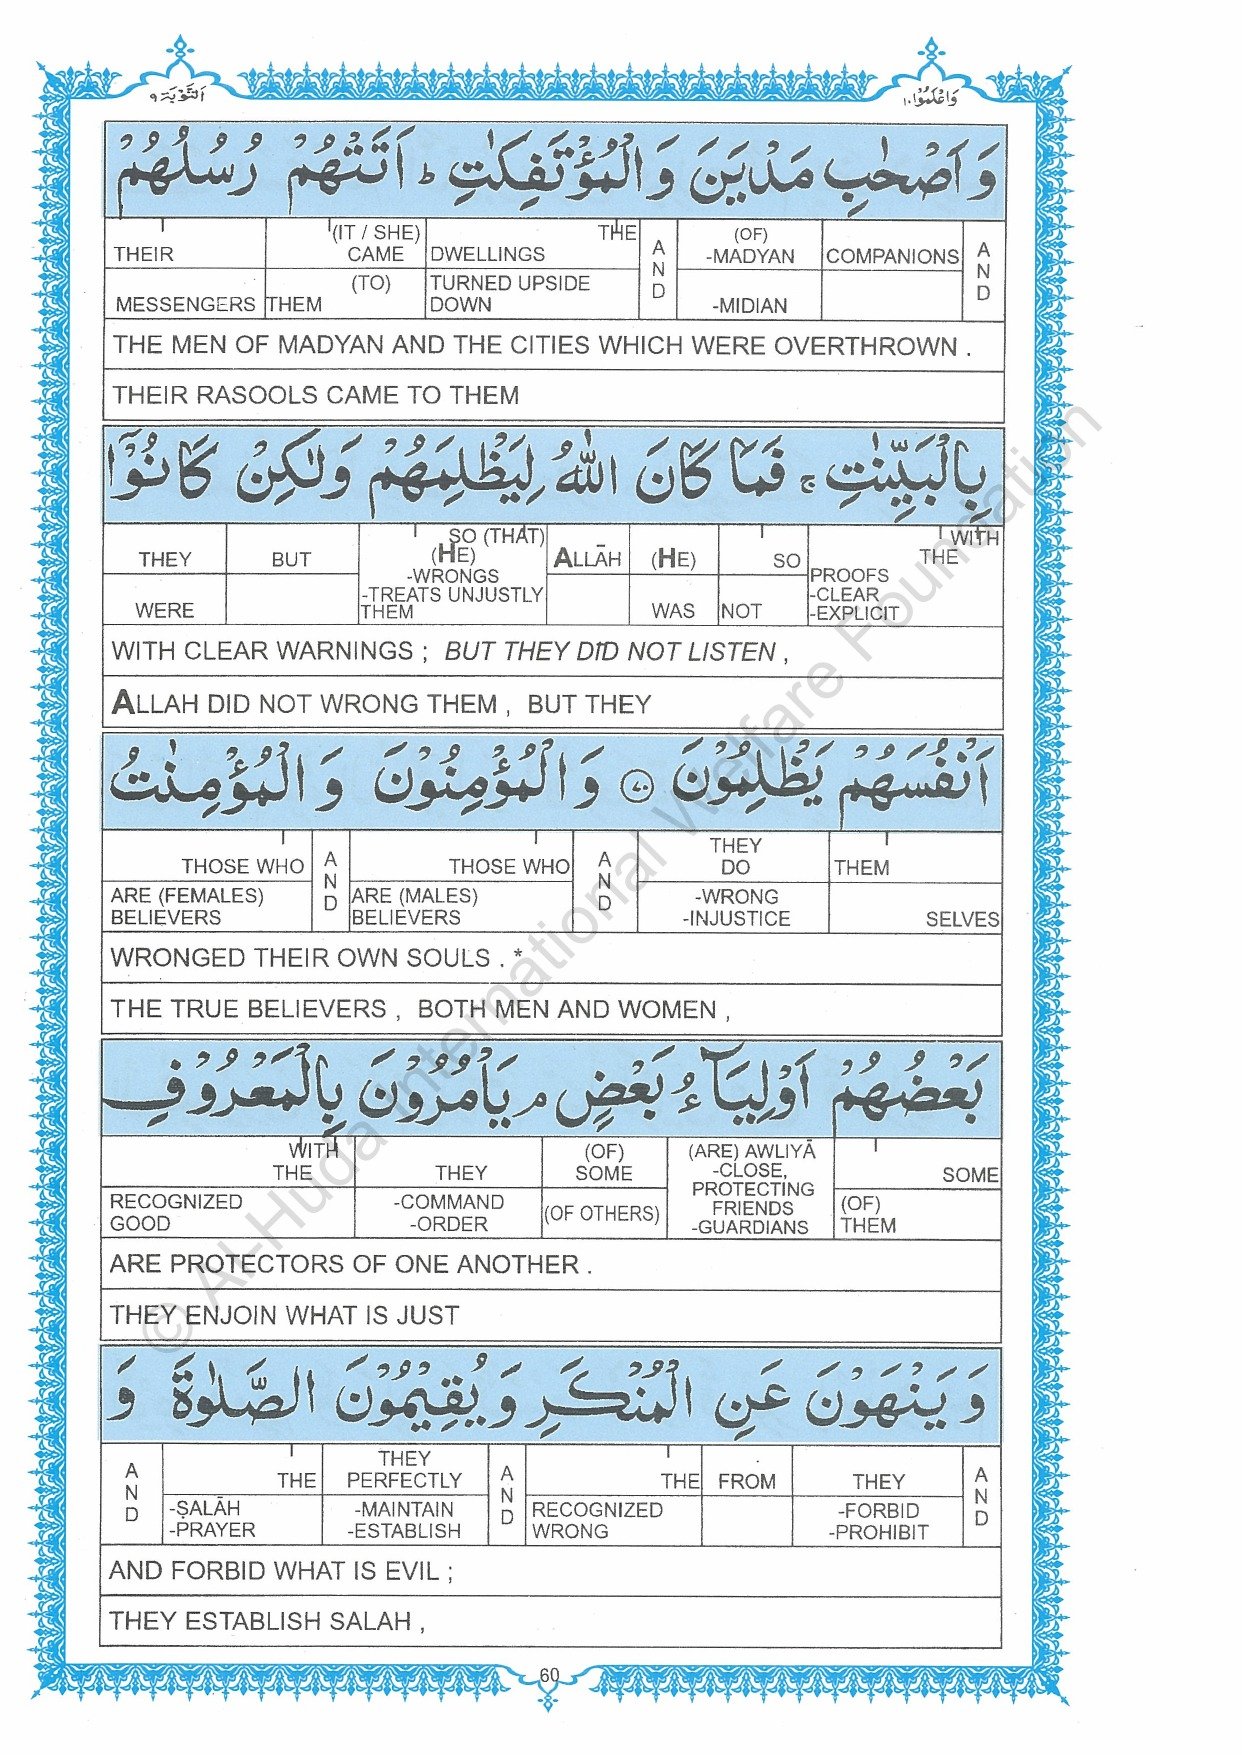 اَلتَّوْبَة ٩
وَاعْلَمُوْٓا ١٠
وَ اَصْحٰبِ مَدْيَنَ وَ الْمُؤْتَفِكٰتِ ؕ اَتَتْهُمْ رُسُلُهُمْ
THEIR (IT / SHE) CAME DWELLINGS THE AND (OF) -MADYAN COMPANIONS AND
MESSENGERS THEM (TO) TURNED UPSIDE DOWN -MIDIAN
THE MEN OF MADYAN AND THE CITIES WHICH WERE OVERTHROWN .
THEIR RASOOLS CAME TO THEM
بِالْبَيِّنٰتِ ۚ فَمَا كَانَ اللّٰهُ لِيَظْلِمَهُمْ وَلٰكِنْ كَانُوْٓا
THEY BUT SO (THAT) (HE) ALLĀH (HE) SO WITH THE
WERE -WRONGS -TREATS UNJUSTLY THEM WAS NOT PROOFS -CLEAR -EXPLICIT
WITH CLEAR WARNINGS ; BUT THEY DID NOT LISTEN ,
ALLAH DID NOT WRONG THEM , BUT THEY
اَنْفُسَهُمْ يَظْلِمُوْنَ ٧٠ وَ الْمُؤْمِنُوْنَ وَ الْمُؤْمِنٰتُ
THOSE WHO AND THOSE WHO AND THEY DO THEM
ARE (FEMALES) BELIEVERS ARE (MALES) BELIEVERS -WRONG -INJUSTICE SELVES
WRONGED THEIR OWN SOULS . *
THE TRUE BELIEVERS , BOTH MEN AND WOMEN ,
بَعْضُهُمْ اَوْلِيَآءُ بَعْضٍ ۘ يَاْمُرُوْنَ بِالْمَعْرُوْفِ
WITH THE THEY (OF) SOME (ARE) AWLIYĀ -CLOSE, PROTECTING FRIENDS -GUARDIANS SOME
RECOGNIZED GOOD -COMMAND -ORDER (OF OTHERS) (OF) THEM
ARE PROTECTORS OF ONE ANOTHER .
THEY ENJOIN WHAT IS JUST
وَ يَنْهَوْنَ عَنِ الْمُنْكَرِ وَ يُقِيْمُوْنَ الصَّلٰوةَ وَ
AND THE THEY PERFECTLY AND THE FROM THEY AND
-ṢALĀH -PRAYER -MAINTAIN -ESTABLISH RECOGNIZED WRONG -FORBID -PROHIBIT
AND FORBID WHAT IS EVIL ;
THEY ESTABLISH SALAH ,
60
© Al-Huda International Welfare Foundation